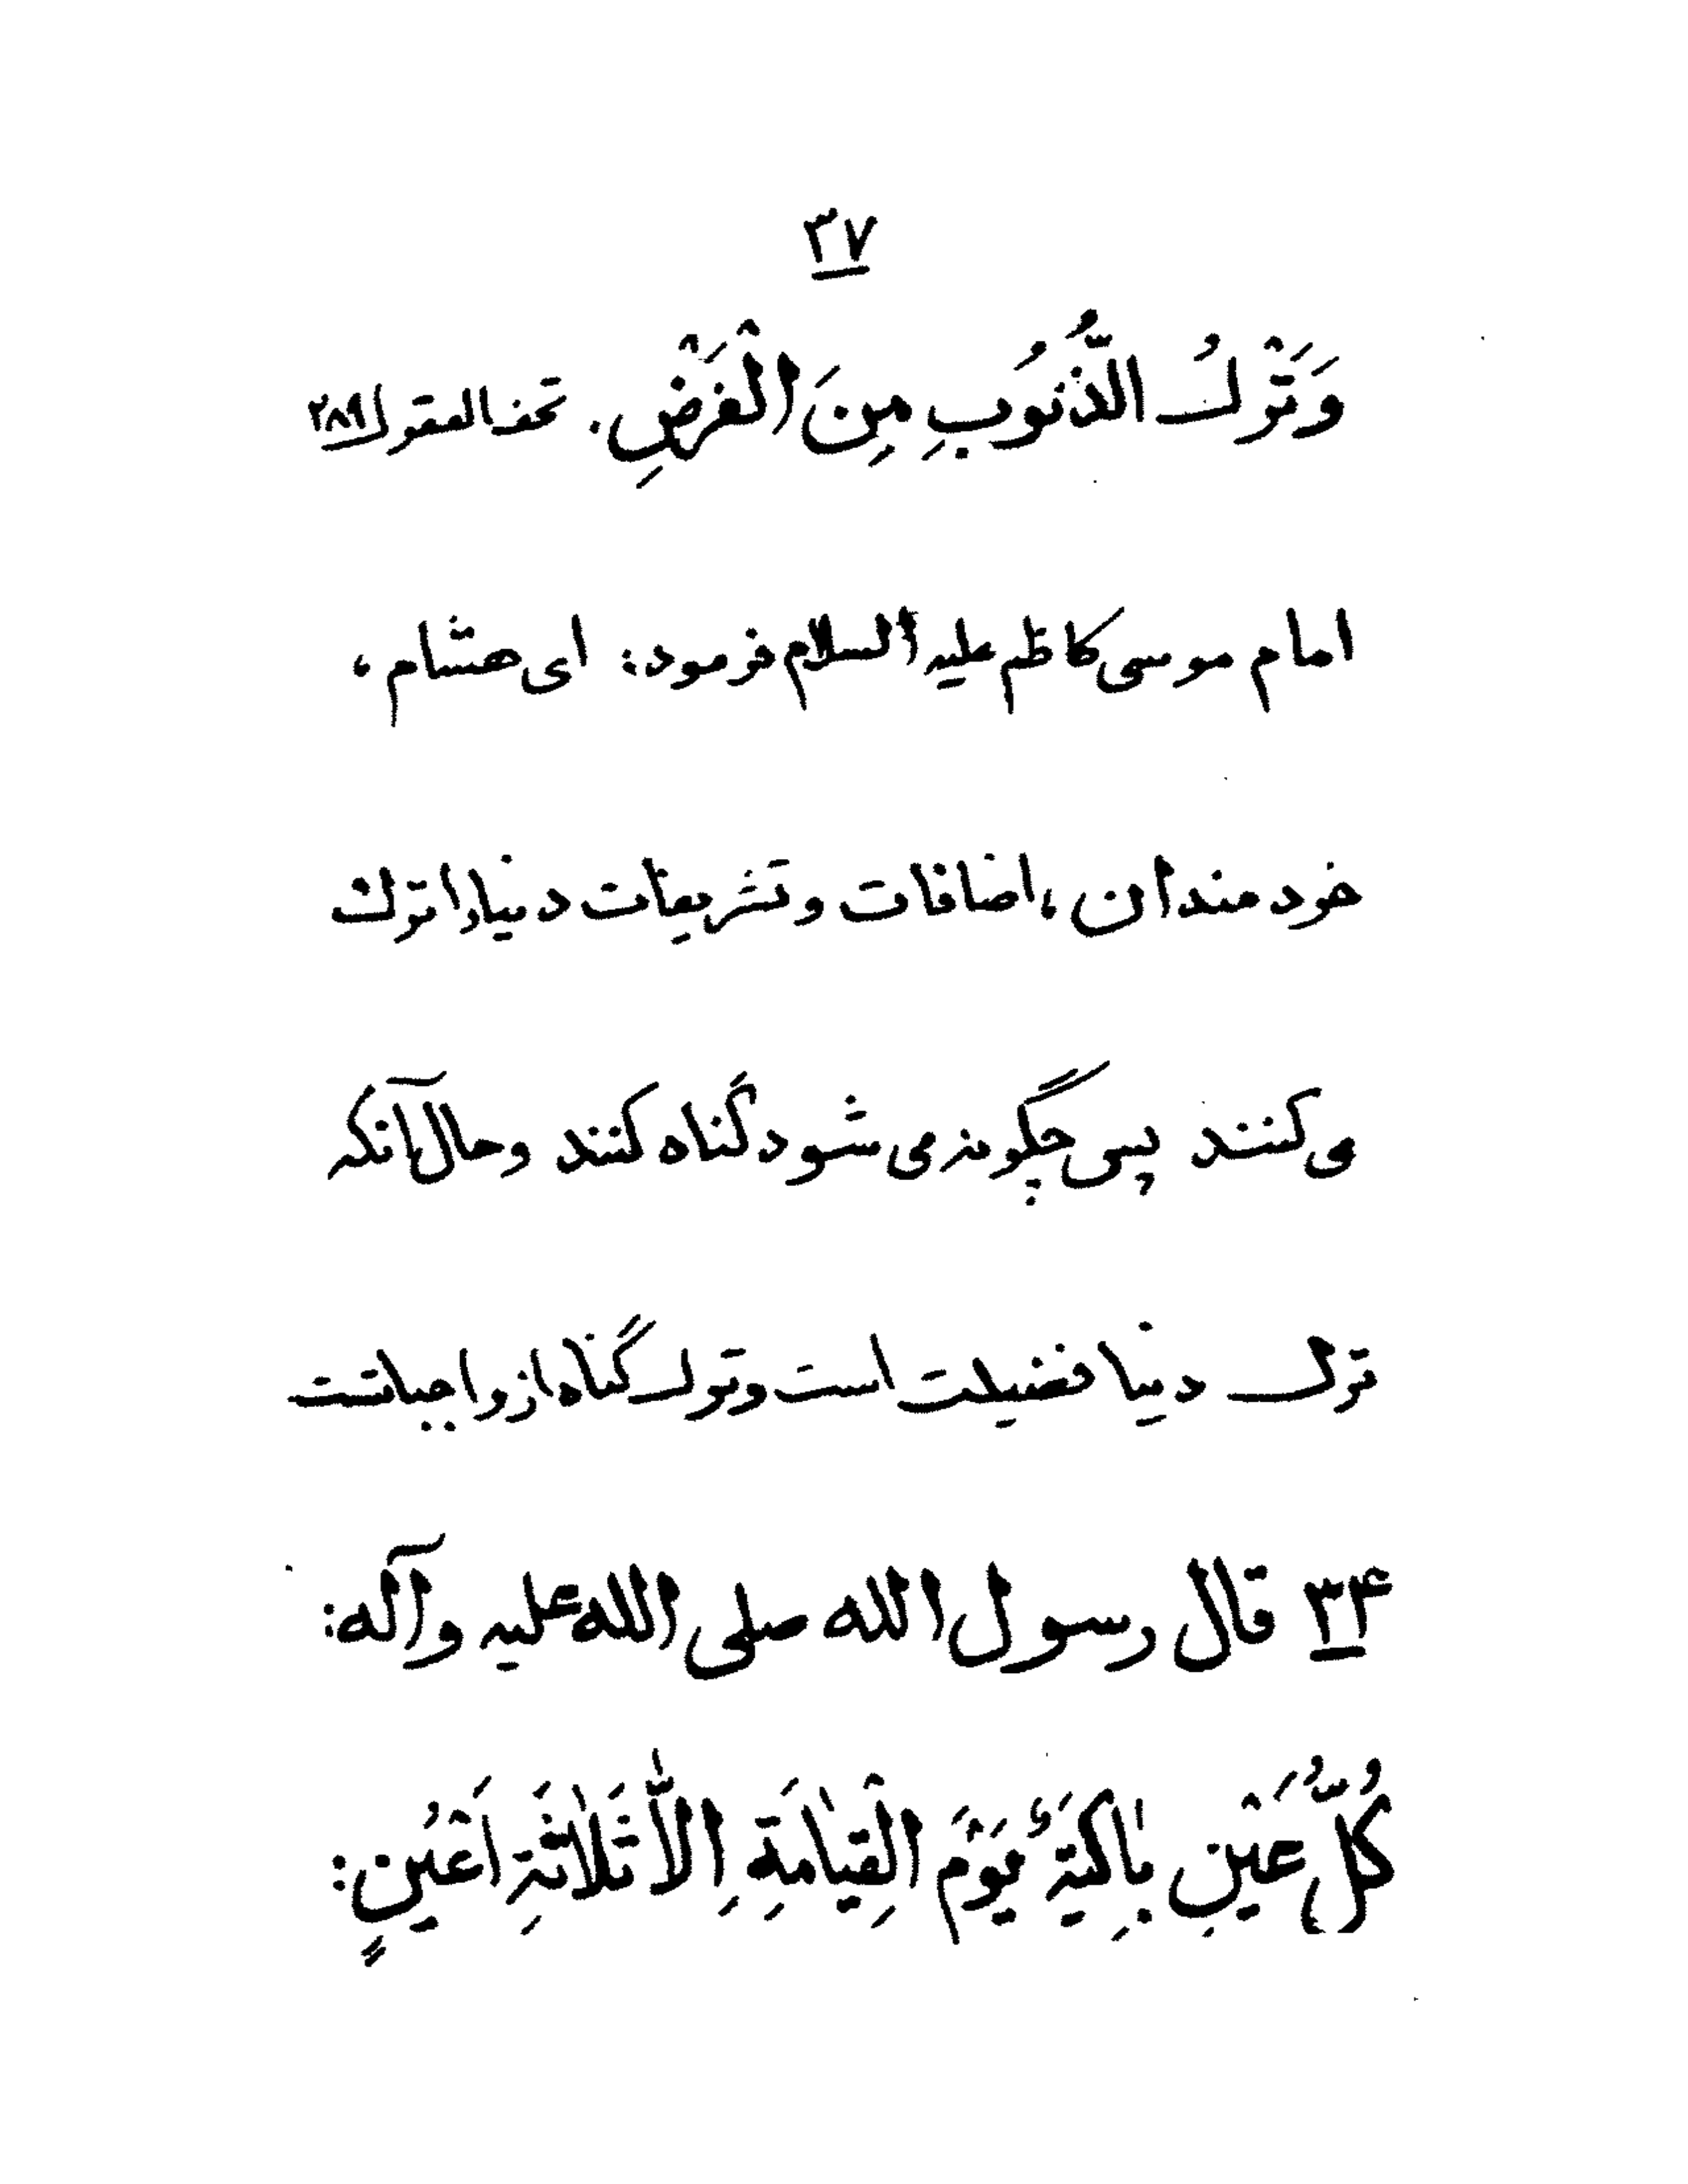 ۳۷
وَتَرْكُ الذُّنُوبِ مِنَ الْفَرْضِ. تحف العقول ۲۸۹
امام موسی کاظم علیه السلام فرمود: ای هشام،
خردمندان، اضافات و تشریفات دنیا را ترک
می کنند پس چگونه می شود گناه کنند و حال آنکه
ترک دنیا فضیلت است و ترک گناه از واجباتست
۳۴ قال رسول الله صلی الله علیه وآله:
كُلُّ عَيْنٍ بٰاكِيَةٌ يَوْمَ الْقِيٰامَةِ اِلاّٰ ثَلاٰثَةِ اَعْيُنٍ: